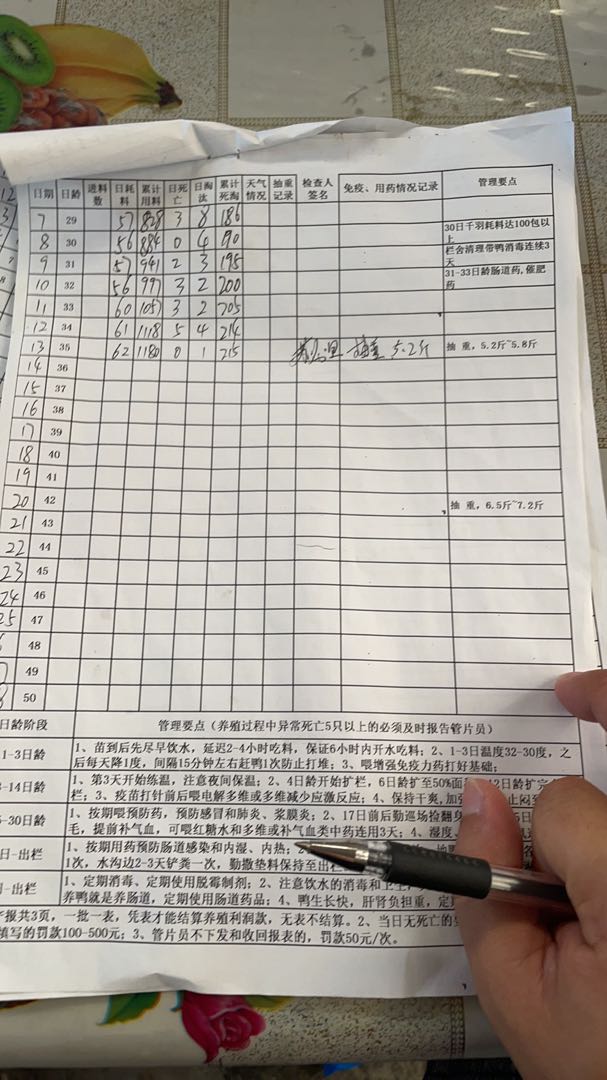 日期 日龄 进料数 日耗料 累计用料 日死亡 日淘汰 累计死淘 天气情况 抽重记录 检查人签名 免疫、用药情况记录 管理要点
7 29 57 828 3 8 186
8 30 56 884 0 4 190 30日千羽耗料达100包以上
9 31 57 941 2 3 195 栏舍清理带鸭消毒连续3天
10 32 56 997 3 2 200 31-33日龄肠道药,催肥药
11 33 60 1057 3 2 205
12 34 61 1118 5 4 214
13 35 62 1180 0 1 215 抽重 5.2斤 抽 重，5.2斤~5.8斤
14 36
15 37
16 38
17 39
18 40
19 41
20 42 抽 重，6.5斤~7.2斤
21 43
22 44
23 45
24 46
25 47
48
49
50
日龄阶段 管理要点（养殖过程中异常死亡5只以上的必须及时报告管片员）
1-3日龄 1、苗到后先尽早饮水，延迟2-4小时吃料，保证6小时内开水吃料；2、1-3日温度32-30度，之
后每天降1度，间隔15分钟左右赶鸭1次防止打堆；3、喂增强免疫力药打好基础；
-14日龄 1、第3天开始练温，注意夜间保温；2、4日龄开始扩栏，6日龄扩至50%面 12日龄扩完
栏；3、疫苗打针前后喂电解多维或多维减少应激反应；4、保持干爽，加
5-30日龄 1、按期喂预防药，预防感冒和肺炎、浆膜炎；2、17日前后勤巡场捡翻身
毛，提前补气血，可喂红糖水和多维或补气血类中药连用3天；4、湿度、
日-出栏 1、按期用药预防肠道感染和内湿、内热；
1次，水沟边2-3天铲粪一次，勤撒垫料保持至出栏
-出栏 1、定期消毒、定期使用脱霉制剂；2、注意饮水的消毒和卫生
养鸭就是养肠道，定期使用肠道药品；4、鸭生长快，肝肾负担重，定
报共3页，一批一表，凭表才能结算养殖利润款，无表不结算。2、当日无死亡的
填写的罚款100-500元；3、管片员不下发和收回报表的，罚款50元/次。